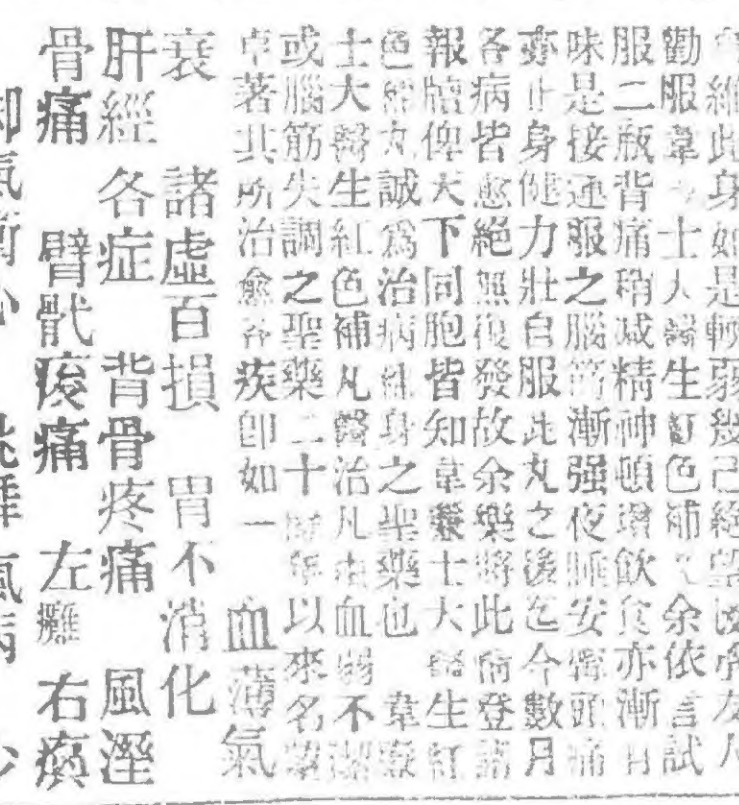 維此身如是軟弱幾已絕望後承友人
勸服韋士大醫生紅色補余依言試
服二瓶背痛稍減精神頓增飲食亦漸有
味是接連服之腦筋漸强夜睡安寧頭痛
亦止身健力壯自服此丸之後迄今數月
各病皆愈絕無復發故余樂將此函登諸
報牘俾天下同胞皆知韋廉士大醫生紅
色補丸誠爲治病紅身之聖藥也 韋廉
士大醫生紅色補凡醫治凡由血弱不潔
或腦筋失調之聖藥二十餘年以來名
卓著其所治愈各疾卽如一 血薄氣
衰 諸虛百損 胃不消化
肝經各症 背骨疼痛 風溼
骨痛 臂骱痠痛 左癱右瘓
脚氣衝心